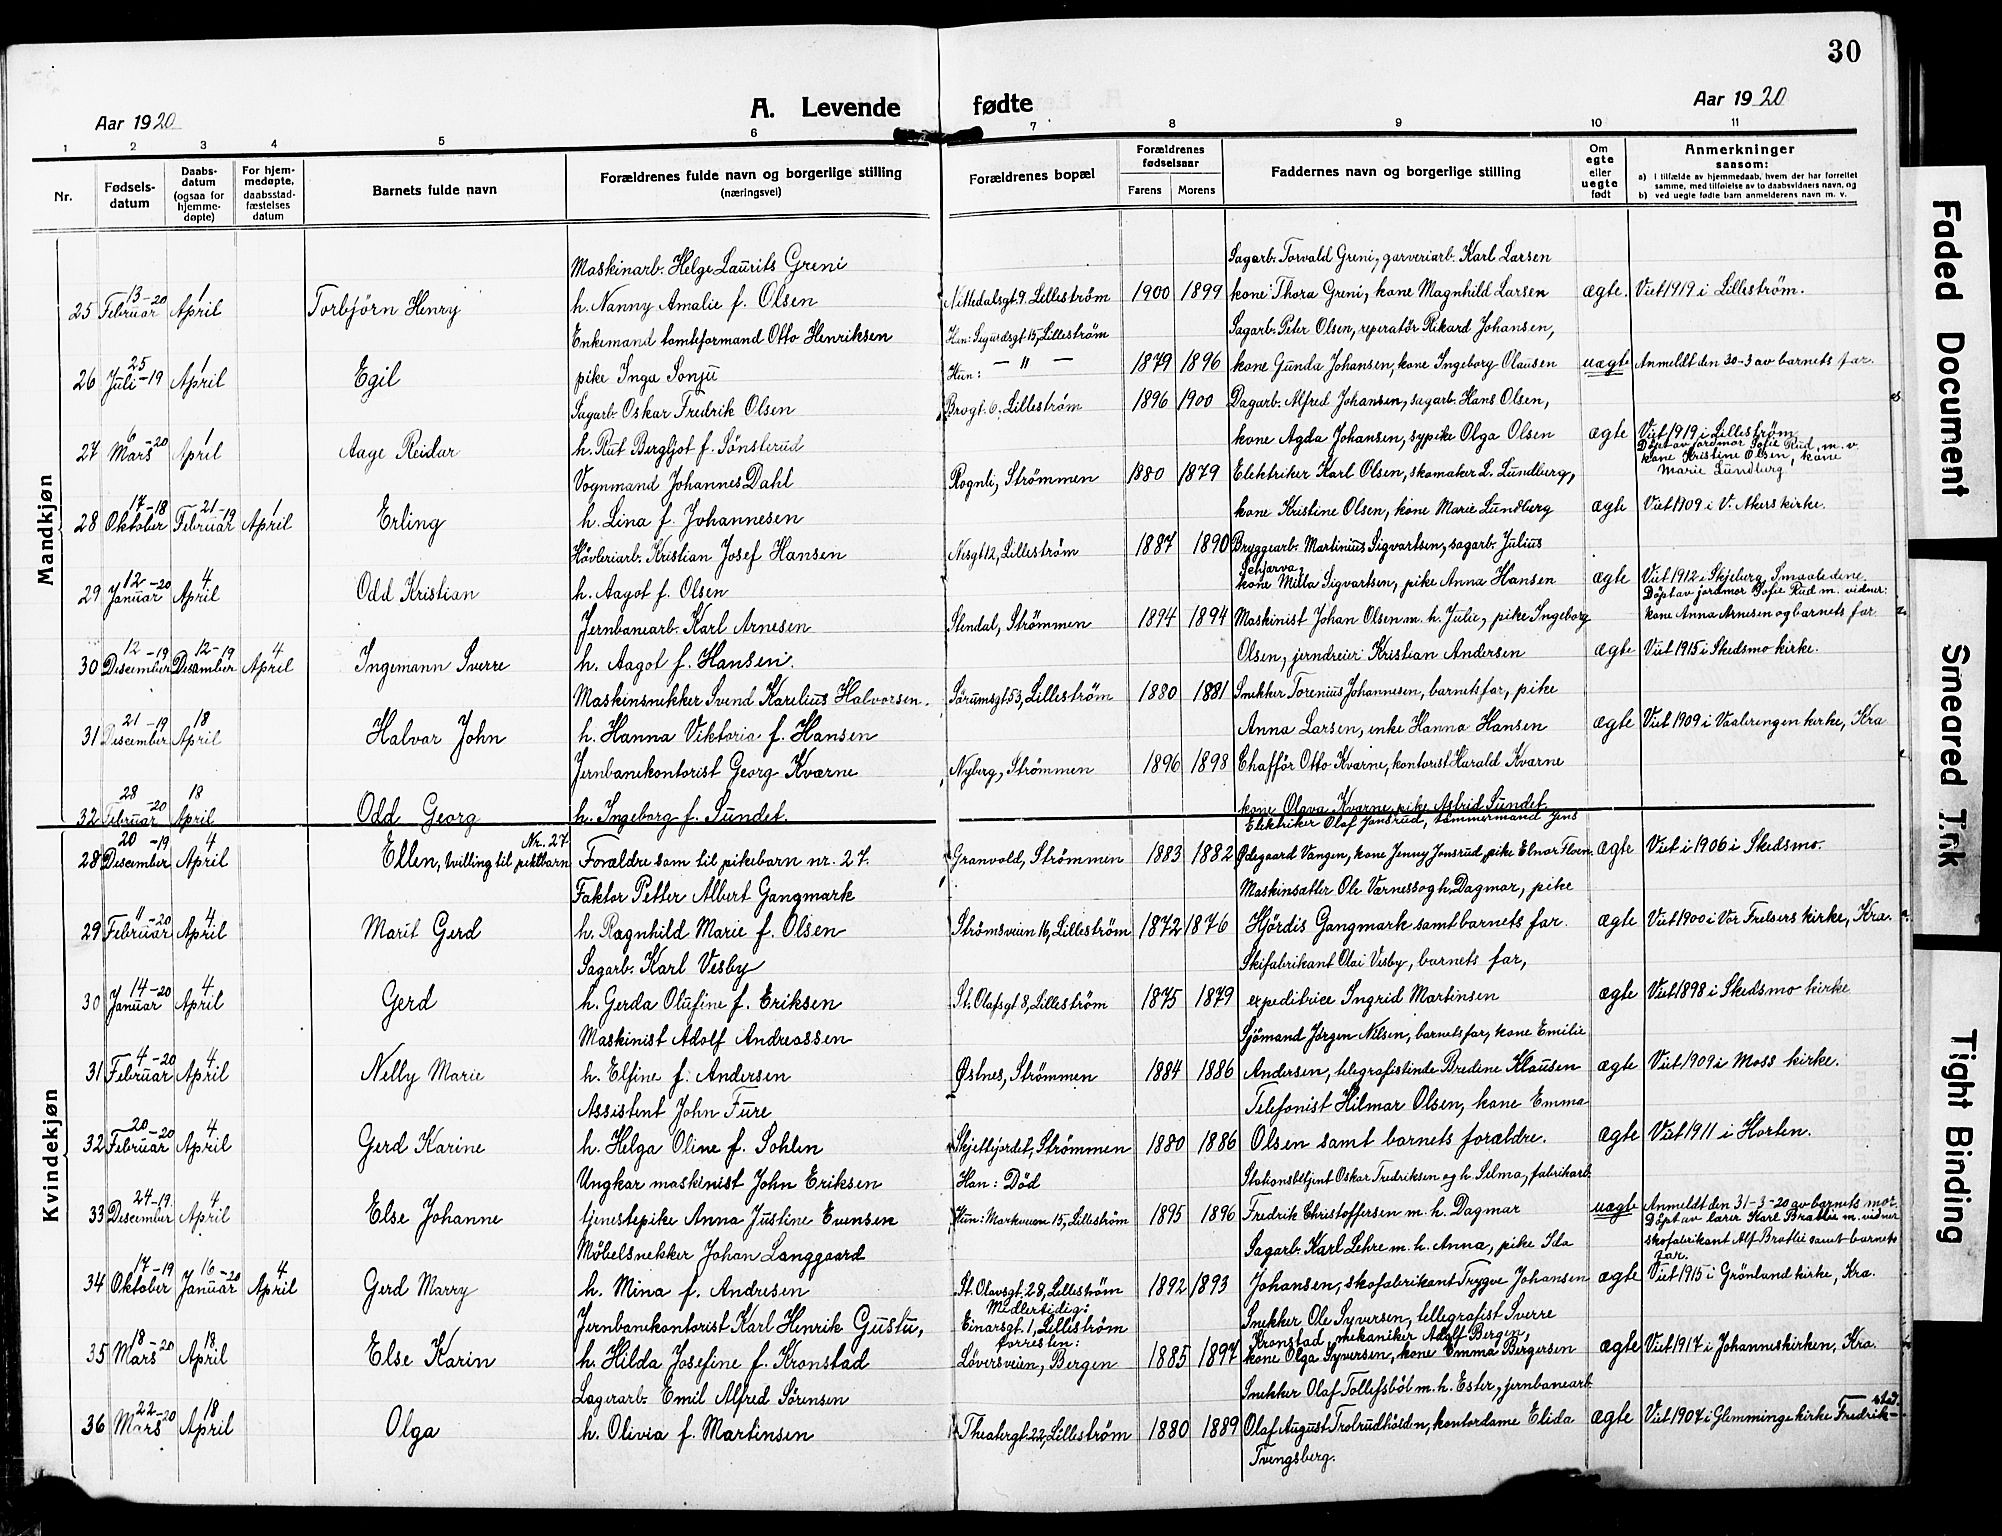 30
A. Levende fødte
Aar 1920
Aar 1920
1 2 3 4 5 6 7 8 9 10 11
Nr.
Fødsels-
datum
Daabs-
datum
(ogsaa for
hjemme-
døpte)
For hjem-
medøpte,
daabsstad-
fæstelses
datum
Barnets fulde navn
Forældrenes fulde navn og borgerlige stilling
(næringsvei)
Forældrenes bopæl
Forældrenes
fødselsaar
Farens Morens
Faddernes navn og borgerlige stilling
Om
egte
eller
uegte
født
Anmerkninger
saasom:
a) I tilfælde av hjemmedaab, hvem der har forrettet
samme, med tilføielse av to daabsvidners navn, og
b) ved uegte fødte barn anmelderens navn m. v.
Mandkjøn
Maskinarb. Helge Laurits Greni Sagarb. Torvald Greni, garveriarb. Karl Larsen
25 13-20 Februar 1 April Torbjørn Henry h. Nanny Amalie f. Olsen Nittedalsgt. 9. Lilleström 1900 1899 kone Thora Greni, kone Magnhild Larsen ægte. Viet 1919 i Lilleström.
Enkemand tomteformand Otto Henriksen Han: Sigurdsgt. 15, Lilleström Sagarb. Peter Olsen, reperatør Rikard Johansen,
26 25 Juli-19 1 April Egil pike Inga Sonju Hun: — " — 1879 1896 kone Gunda Johansen, kone Ingeborg Olausen uægte Anmeldt den 30-3 av barnets far.
Sagarb. Oskar Fredrik Olsen Brogt. 6, Lilleström 1896 1900 Dagarb. Alfred Johansen, sagarb. Hans Olsen,
27 6 Mars-20 1 April Aage Reidar h. Rut Bergljot f. Sønsterud kone Agda Johansen, sypike Olga Olsen ægte Viet 1919 i Lilleström
Døpt av jordmor Sofie Rud, m. v.
kone Kristine Olsen, kone
Marie Lundberg
Vognmand Johannes Dahl Rognli, Strömmen 1880 1879 Elektriker Karl Olsen, skomaker L. Lundberg,
28 17-18 Oktober 21-19 Februar 1 April Erling h. Lina f. Johannesen kone Kristine Olsen, kone Marie Lundberg ægte Viet 1909 i V. Akers kirke.
Høvleriarb. Kristian Josef Hansen Nesgt 12, Lilleström 1887 1890 Bryggearb. Martinius Sigvartsen, sagarb. Julius
29 12-20 Januar 4 April Odd Kristian h. Aagot f. Olsen kone Milla Sigvartsen, pike Anna Hansen ægte Viet 1912 i Skjeberg, Smaaledene.
Døpt av jordmor Sofie Rud m. vidner:
Jernbanearb. Karl Arnesen Stendal, Strömmen 1894 1894 Maskinist Johan Olsen m. h. Julie, pike Ingeborg kone Anna Arnesen og barnets far
30 12-19 Desember 12-19 Desember 4 April Ingemann Sverre h. Aagot f. Hansen. Olsen, jerndreier Kristian Andersen ægte Viet 1915 i Skedsmo kirke.
Maskinsnekker Svend Karelius Halvorsen. Sørumsgt. 53, Lilleström 1880 1881 Snekker Torenius Johannesen, barnets far, pike
31 21-19 Desember 18 April Halvar John h. Hanna Viktoria f. Hansen Anna Larsen, enke Hanna Hansen ægte Viet 1909 i Vaalerengen kirke, Kra
Jernbanekontorist Georg Kværne Nyberg, Strömmen 1896 1898 Chafför Otto Kværne, kontorist Harald Kværne
32 28-20 Februar 18 April Odd Georg h. Ingeborg f. Sundet. kone Olava Kværne, pike Astrid Sundet
Kvindekjøn
Elektriker Olaf Jonsrud, tömmermand Jens
28 20-19 Desember 4 April Ellen, tvilling til pikebarn Nr. 27. Forældre som til pikebarn nr. 27. Granvold, Strömmen 1883 1882 Ødegaard Vangen, kone Jenny Jonsrud, pike Elnor Floen ægte Viet i 1906 i Skedsmo.
Faktor Petter Albert Gangmark Maskinsætter Ole Værness og h. Dagmar, pike
29 11-20 Februar 4 April Marit Gerd h. Ragnhild Marie f. Olsen Strömsveien 16, Lilleström 1872 1876 Hjördis Gangmark samt barnets far. ægte Viet 1900 i Vor Frelsers kirke, Kra.
Sagarb. Karl Visby Skifabrikant Olai Visby, barnets far,
30 14-20 Januar 4 April Gerd h. Gerda Olufine f. Eriksen St. Olafsgt 8, Lilleström 1875 1879 expeditrice Ingrid Martinsen ægte Viet 1898 i Skedsmo kirke
Maskinist Adolf Andreassen Sjömand Jørgen Nilsen, barnets far, kone Emilie
31 4-20 Februar 4 April Nelly Marie h. Elfine f. Andersen Østnes, Strömmen 1884 1886 Andersen, telegrafistinde Bredine Klausen ægte Viet 1909 i Moss kirke.
Assistent John Fure Telefonist Hilmar Olsen, kone Emma
32 20-20 Februar 4 April Gerd Karine h. Helga Oline f. Sohlen Skjettjordet, Strömmen 1880 1886 Olsen samt barnets forældre. ægte Viet 1911 i Horten.
Ungkar maskinist John Eriksen Han: Död Stationsbetjent Oskar Fredriksen og h. Selma, fabrikarb.
33 24-19 Desember 4 April Else Johanne tjenestepike Anna Justine Evensen Hun: Markveien 15, Lilleström 1895 1896 Fredrik Christoffersen m. h. Dagmar uægte Anmeldt den 31-3-20 av barnets mor.
Døpt av lærer Karl Bratlie m. vidner
Møbelsnekker Johan Langgaard Sagarb. Karl Lehre m. h. Anna, pike Ida skofabrikant Alf Bratlie samt barnets
far.
34 17-19 Oktober 16-20 Januar 4 April Gerd Marry h. Mina f. Andresen St. Olavsgt. 28, Lilleström 1892 1893 Johansen, skofabrikant Trygve Johansen ægte Viet 1915 i Grönland kirke, Kra.
Jernbanekontorist Karl Henrik Gustu, Midlertidig:
Einarsgt. 1, Lilleström Snekker Ole Syversen, tellegrafist Sverre
forresten: Kronstad, mekaniker Adolf Bergen,
35 18-20 Mars 18 April Else Karin h. Hilda Josefine f. Kronstad Löversveien, Bergen 1885 1897 kone Olga Syversen, kone Emma Bergersen ægte Viet 1917 i Johanneskirken, Kra.
Lagerarb. Emil Alfred Sørensen Snekker Olaf Tollefsböl m. h. Ester, jernbanearb.
36 22-20 Mars 18 April Olga h. Olivia f. Martinsen Theatergt. 22, Lilleström 1880 1889 Olaf August kontordame Elida ægte Viet 1907 i Glemminge kirke Fredrik-
stad.
Tvengsberg.
Faded Document
Smeared Ink
Tight Binding